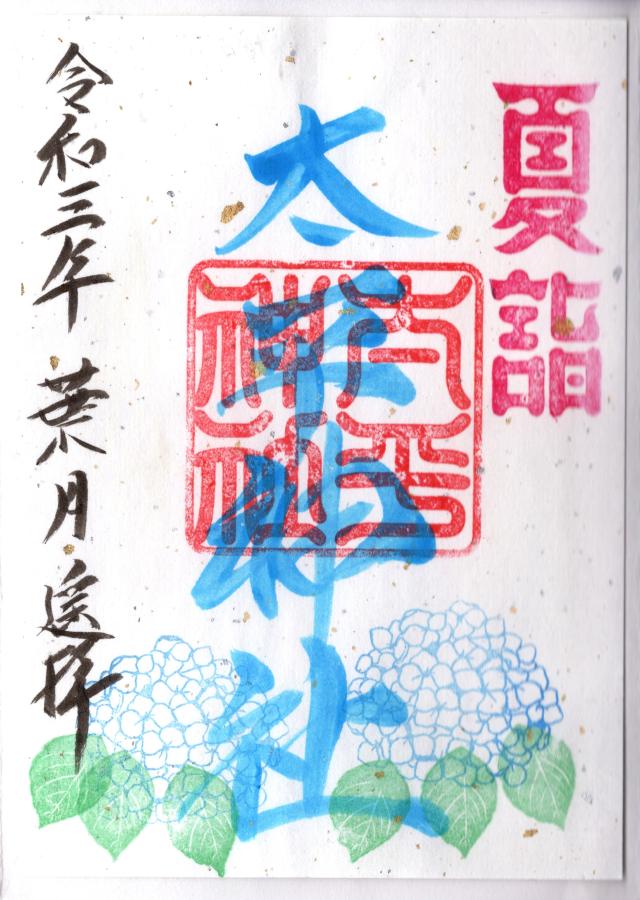 夏詣
太平神社
太平
神社
令和三年 葉月 遥拝